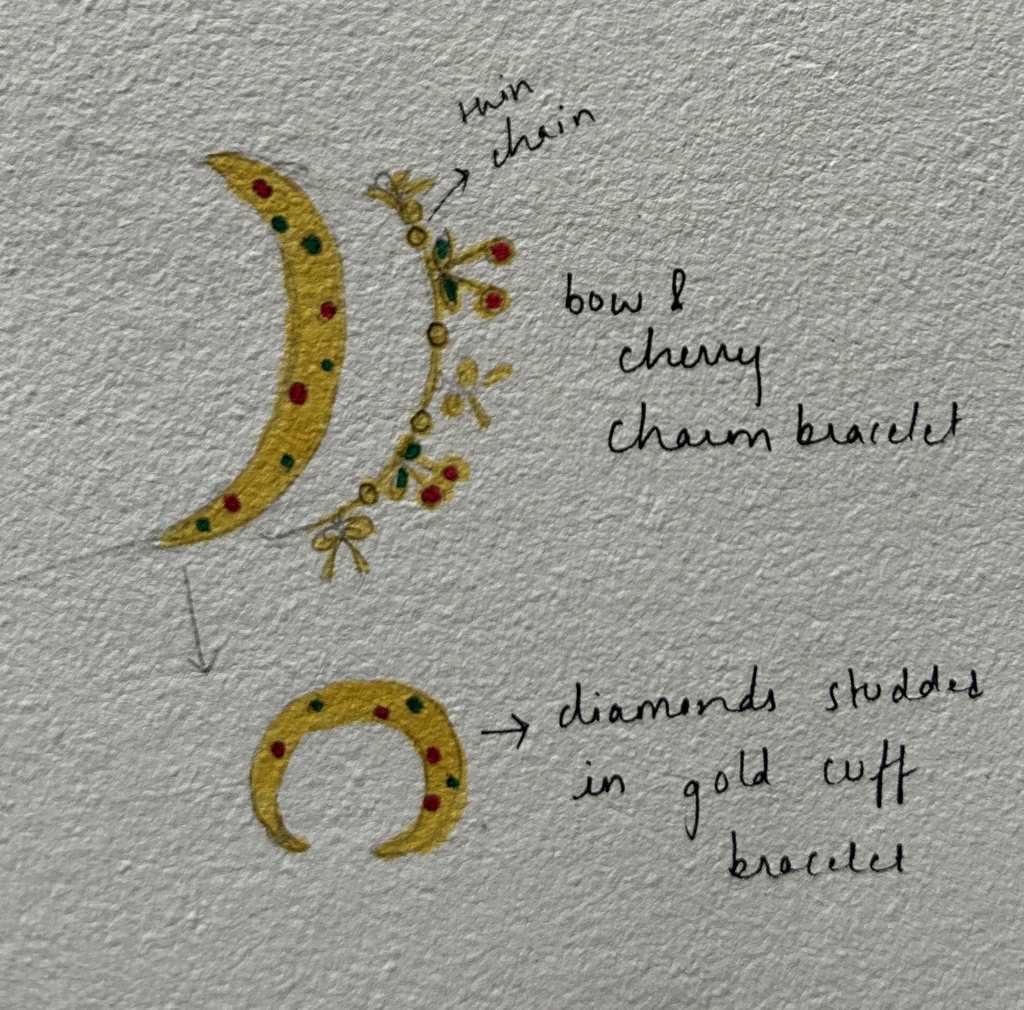 thin
chain
bow &
cherry
charm bracelet
diamonds studded
in gold cuff
bracelet